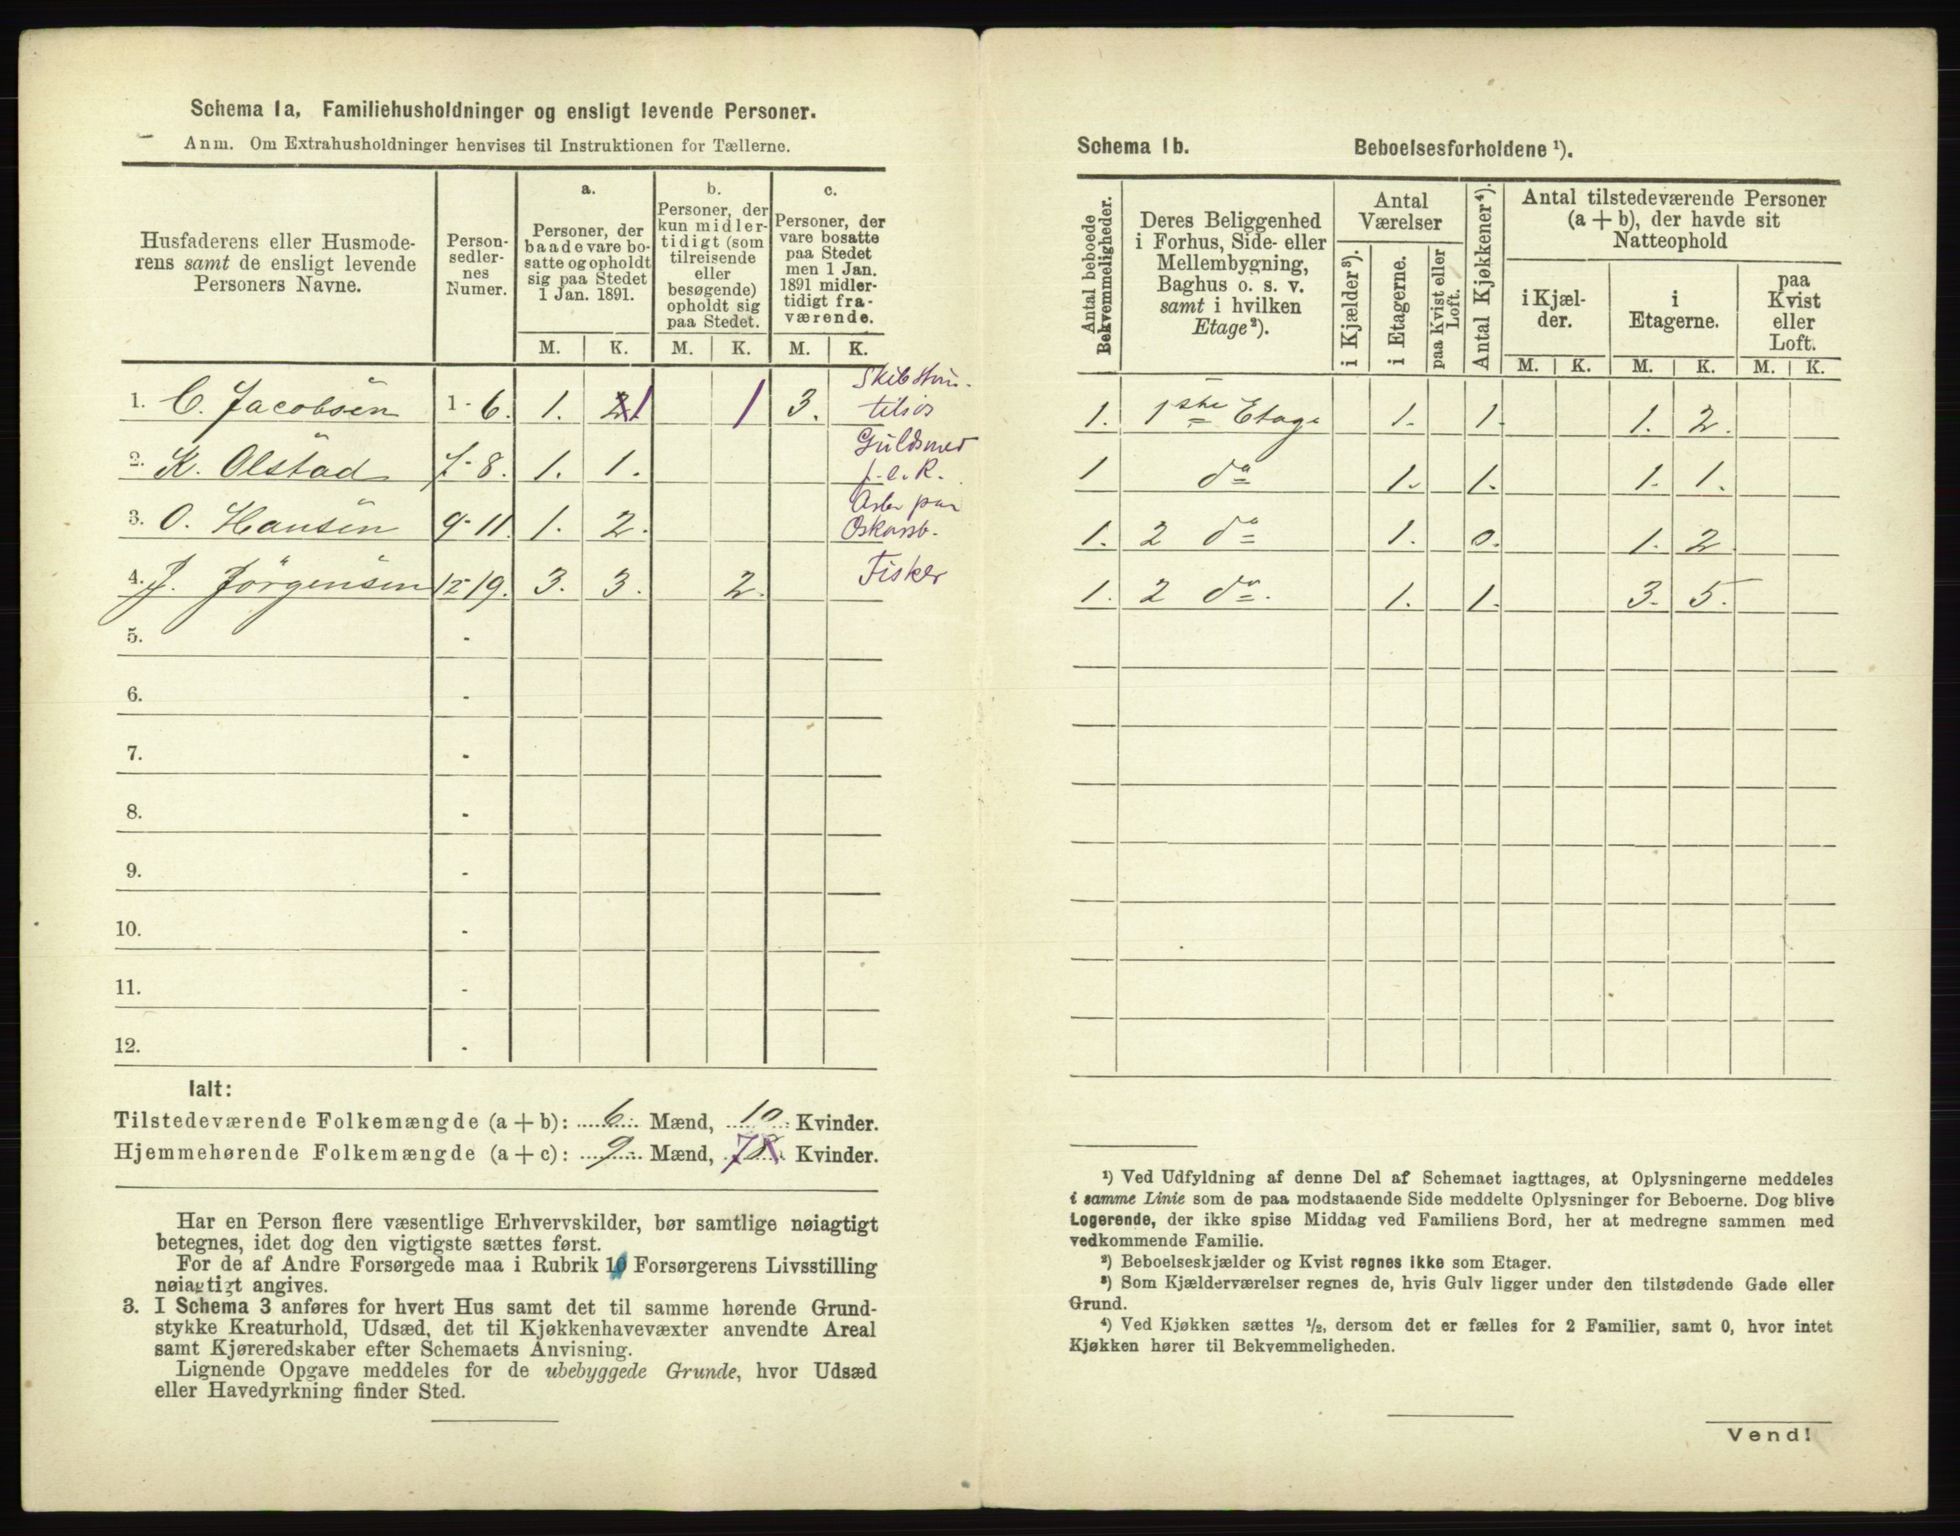 Schema 1a, Familiehusholdninger og ensligt levende Personer.
Anm. Om Extrahusholdninger henvises til Instruktionen for Tællerne.
Husfaderens eller Husmode-
rens samt de ensligt levende
Personers Navne.
Person-
sedler-
nes
Numer.
a.
Personer, der
baade vare bo-
satte og opholdt
sig paa Stedet
1 Jan. 1891.
b.
Personer, der
kun midler-
tidigt (som
tilreisende
eller
besøgende)
opholdt sig
paa Stedet.
c.
Personer, der
vare bosatte
paa Stedet
men 1 Jan.
1891 midler-
tidigt fra-
værende.
M. K. M. K. M. K.
1. C. Jacobsen 1-6. 1. 2 1 1 3. tilsös
2. K. Olstad 7-8. 1. 1. Guldsmed f. e. R.
3. O. Hansen 9-11. 1. 2. Arb. paa Oskarsb.
4. J. Jörgensen 12-19. 3. 3. 2. Fisker
5. -
6. -
7. -
8. -
9. -
10. -
11. -
12. -
Ialt:
Tilstedeværende Folkemængde (a + b): 6 Mænd, 10 Kvinder.
Hjemmehørende Folkemængde (a + c): 9 Mænd, 7 8 Kvinder.
Har en Person flere væsentlige Erhvervskilder, bør samtlige nøiagtigt
betegnes, idet dog den vigtigste sættes først.
For de af Andre Forsørgede maa i Rubrik 10 Forsørgerens Livsstilling
nøiagtigt angives.
3. I Schema 3 anføres for hvert Hus samt det til samme hørende Grund-
stykke Kreaturhold, Udsæd, det til Kjøkkenhavevæxter anvendte Areal
samt Kjøreredskaber efter Schemaets Anvisning.
Lignende Opgave meddeles for de ubebyggede Grunde, hvor Udsæd
eller Havedyrkning finder Sted.
Schema 1b. Beboelsesforholdene ¹).
Antal beboede
Bekvemmeligheder.
Deres Beliggenhed
i Forhus, Side- eller
Mellembygning,
Baghus o. s. v.
samt i hvilken
Etage²).
Antal
Værelser
i Kjælder³).
i Etagerne.
paa Kvist eller
Loft.
Antal Kjøkkener⁴).
Antal tilstedeværende Personer
(a + b), der havde sit
Natteophold
i Kjæl-
der.
i
Etagerne.
paa
Kvist
eller
Loft.
M. K. M. K. M. K.
1. 1ste Etage 1. 1. 1. 2.
1 do 1. 1. 1. 1.
1. 2 do 1. 0. 1. 2
1. 2 do. 1. 1. 3. 5.
¹) Ved Udfyldning af denne Del af Schemaet iagttages, at Oplysningerne meddeles
i samme Linie som de paa modstaaende Side meddelte Oplysninger for Beboerne. Dog blive
Logerende, der ikke spise Middag ved Familiens Bord, her at medregne sammen med
vedkommende Familie.
²) Beboelseskjælder og Kvist regnes ikke som Etager.
³) Som Kjælderværelser regnes de, hvis Gulv ligger under den tilstødende Gade eller
Grund.
⁴) Ved Kjøkken sættes ½, dersom det er fælles for 2 Familier, samt 0, hvor intet
Kjøkken hører til Bekvemmeligheden.
Vend!